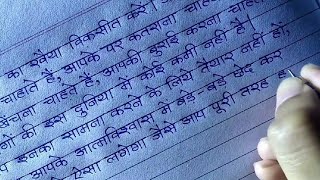 का रवैया विकसित करें।
चाहते हैं, आपके पर कतरना चाहते
चाहते हैं, आपकी बुराई करना चाहते
इस दुनिया में कोई कमी नहीं है।
इनका सामना करने के लिये तैयार नहीं हों,
आपके आत्मविश्वास में बड़े-बड़े छेद कर
ऐसा लगेगा जैसे आप पूरी तरह